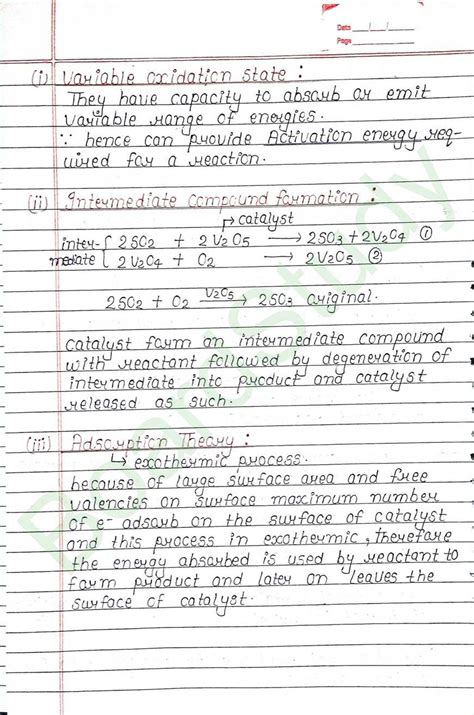 Date __/__/__
Page ______
(i) Variable oxidation state :
They have capacity to absorb or emit
variable range of energies.
∵ hence can provide Activation energy req-
uired for a reaction.
(ii) Intermediate compound formation :
↱ catalyst
inter- { 2SO2 + 2V2O5 ⟶ 2SO3 + 2V2O4 ①
mediate { 2V2O4 + O2 ⟶ 2V2O5 ②
2SO2 + O2 —V2O5→ 2SO3 original.
catalyst form an intermediate compound
with reactant followed by degeneration of
intermediate into product and catalyst
released as such.
(iii) Adsorption Theory :
↳ exothermic process.
because of large surface area and free
valencies on surface maximum number
of e- adsorb on the surface of catalyst
and this process in exothermic, therefore
the energy absorbed is used by reactant to
form product and later on leaves the
surface of catalyst.